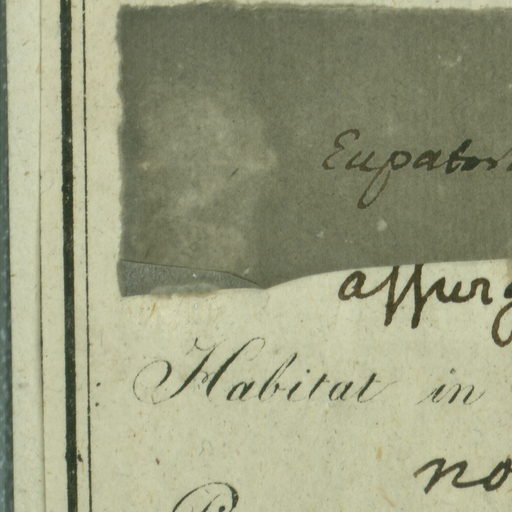 Eupator
assurg
Habitat in
no